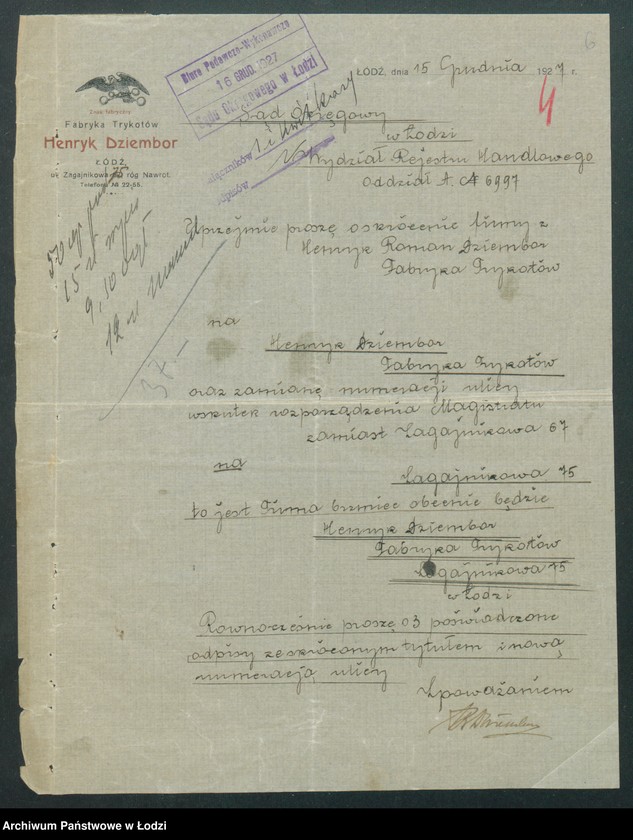 6
Biuro Podawczo-Wykonawcze
16 GRUD. 1927
Sądu Okręgowego w Łodzi
ŁÓDŹ, dnia 15 Grudnia 1927 r.
4
Znak fabryczny
Fabryka Trykotów
Henryk Dziembor
ŁÓDŹ,
ul. Zagajnikowa 75 róg Nawrot.
Telefon № 22-55.
Sąd Okręgowy
w Łodzi
Wydział Rejestru Handlowego
Oddział A. № 6997
15
9,10
12
37.—
Uprzejmie proszę o skrócenie firmy z
Henryk Roman Dziembor
Fabryka Trykotów
na
Henryk Dziembor
Fabryka Trykotów
oraz zamianę numeracji ulicy
wskutek rozporządzenia Magistratu
zamiast Zagajnikowa 67
na
Zagajnikowa 75
to jest Firma brzmieć obecnie będzie
Henryk Dziembor
Fabryka Trykotów
Zagajnikowa 75
w Łodzi
Rownocześnie proszę o 3 poświadczone
odpisy ze skróconym tytułem i nową
numeracją ulicy
Z poważaniem
Archiwum Państwowe w Łodzi